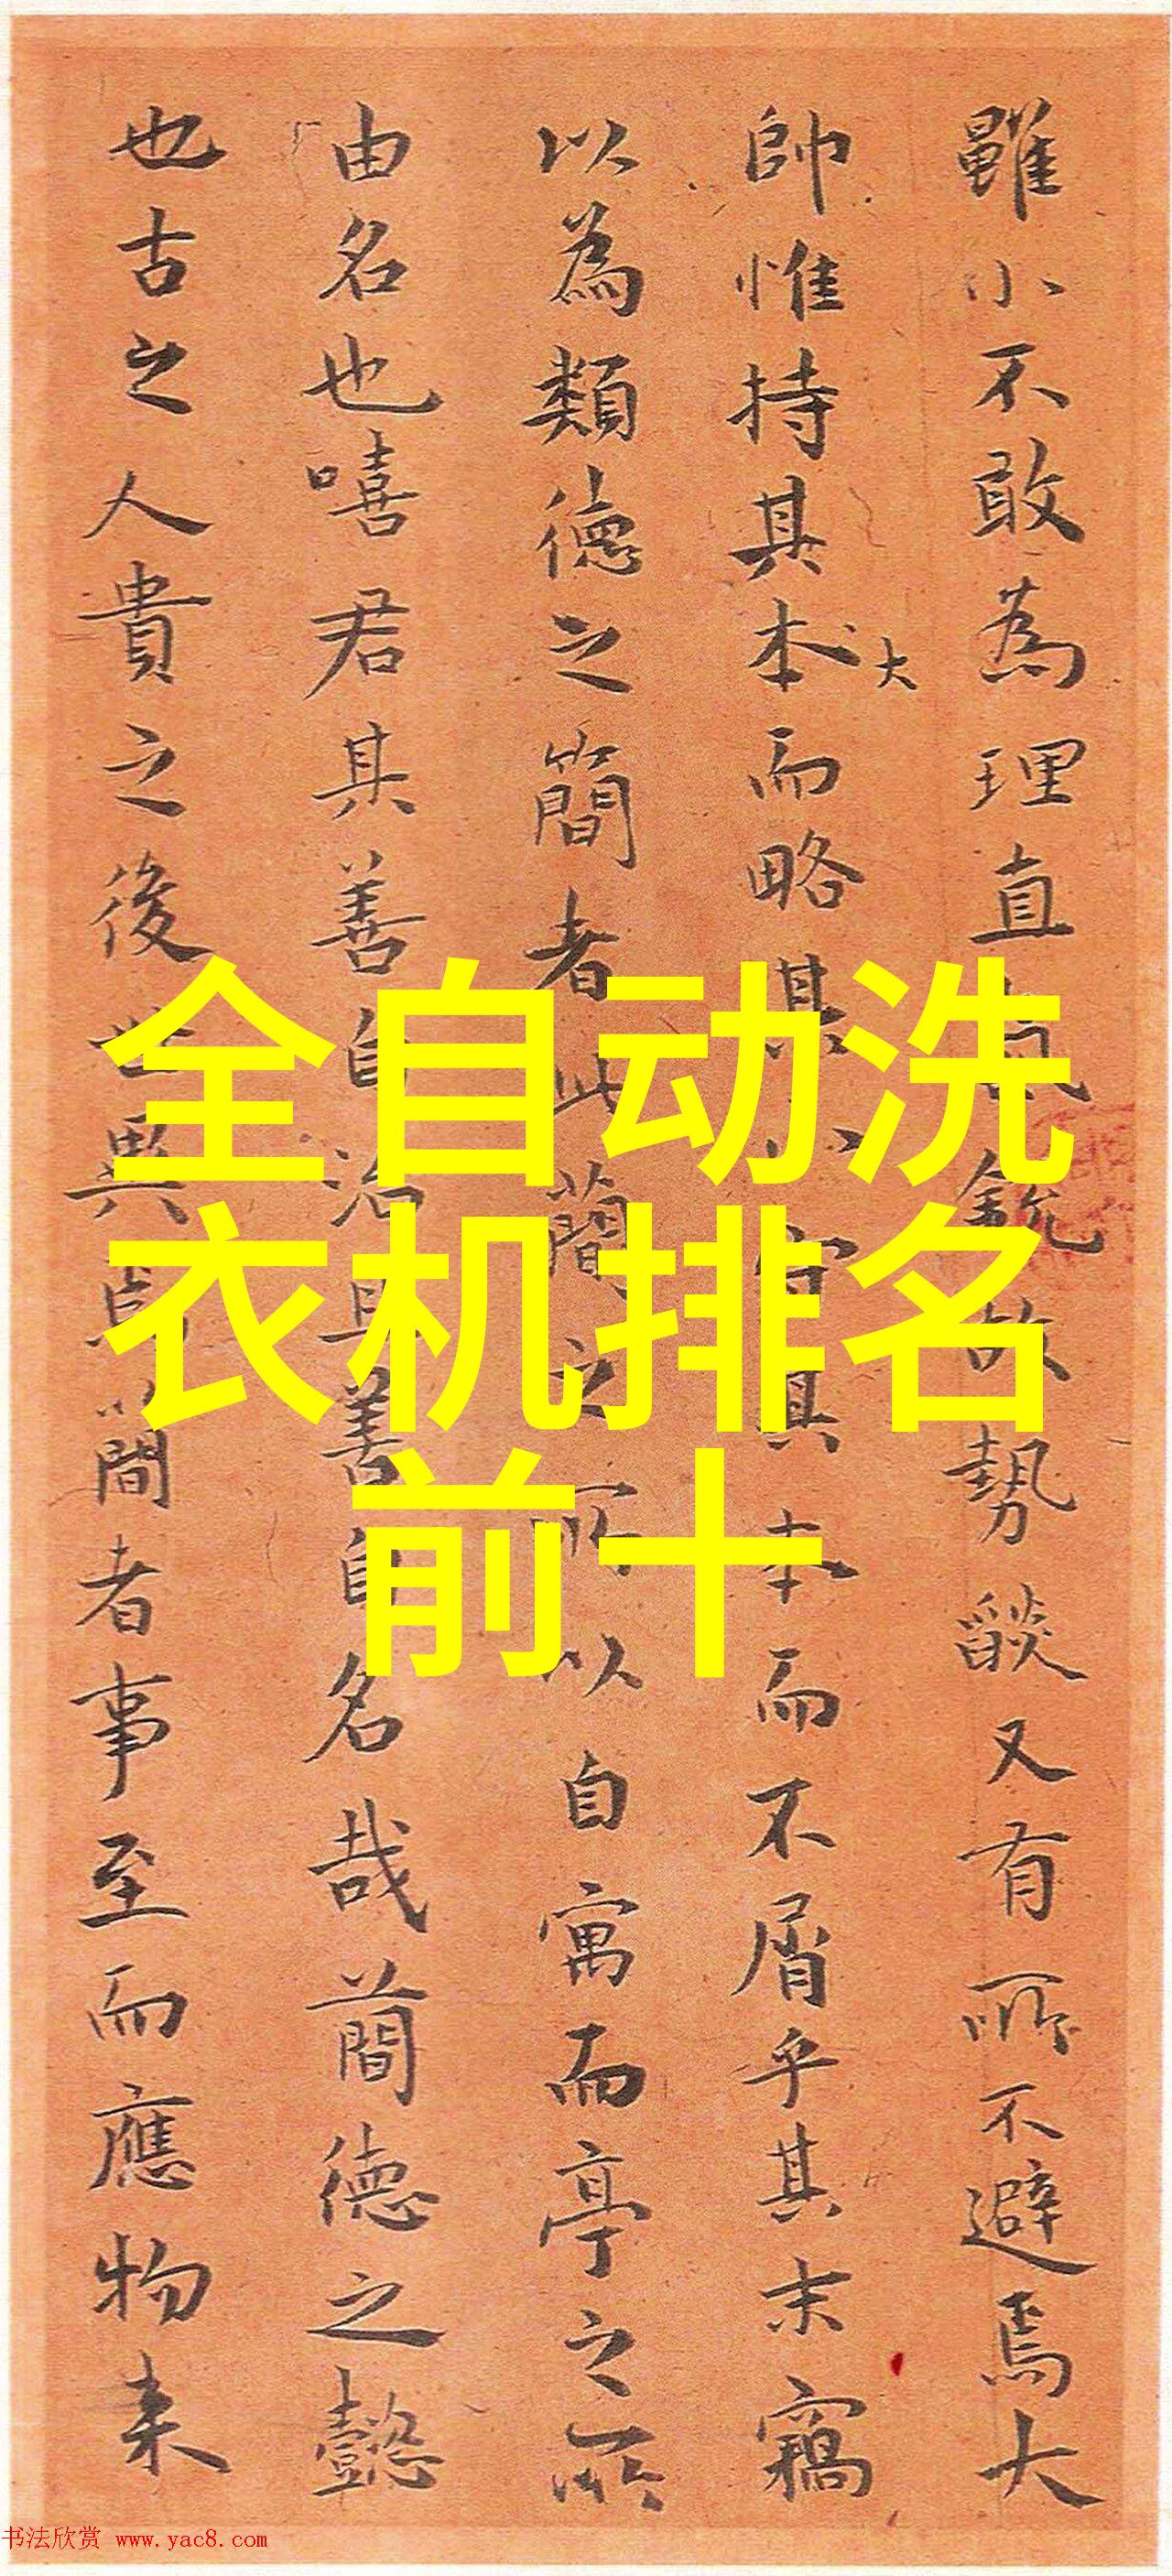 雖小不敢為理直氣銳故勢燄又有所不避焉大
帥惟持其本大而略其小守其本而不屑乎其末竊
以為類德之簡者此簡之所以自寓而亭之所
由名也嘻君其善自治且善自名哉簡德之懿
也古之人貴之後世異焉簡者事至而應物来
全自动洗
衣机排名
前十
书法欣赏 www.yac8.com